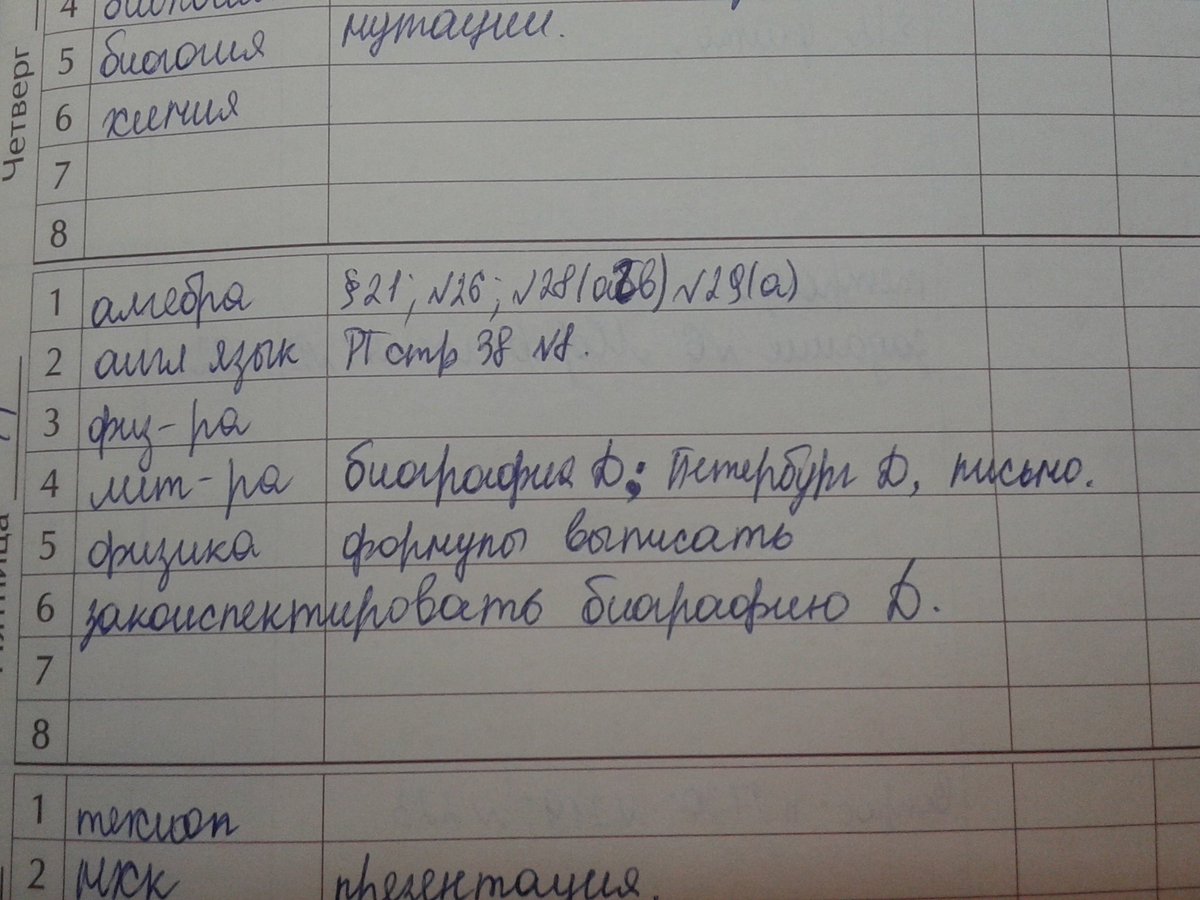 Четверг
4
мутации.
5 биология
6 химия
7
8
Пятница
1 алгебра §21; №26; №28(абв) №29(а)
2 англ язык РТ стр 38 №8.
3 физ-ра
4 лит-ра биография Д; Петербург Д, письмо.
5 физика формулы выписать
6 законспектировать биографию Д.
7
8
1 технол
2 МХК презентация.